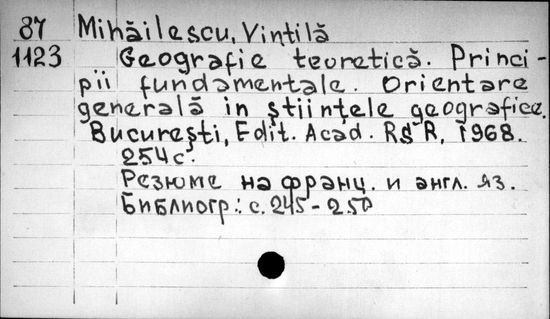 87 Mihăilescu, Vintilă
1123 Geografie teoretică. Princi-
pii fundamentale. Orientare
generală in ştiinţele geografice.
Bucureşti, Edit. Acad. RSR, 1968.
254 с.
Резюме на франц. и англ. яз.
Библиогр.: с. 245-250